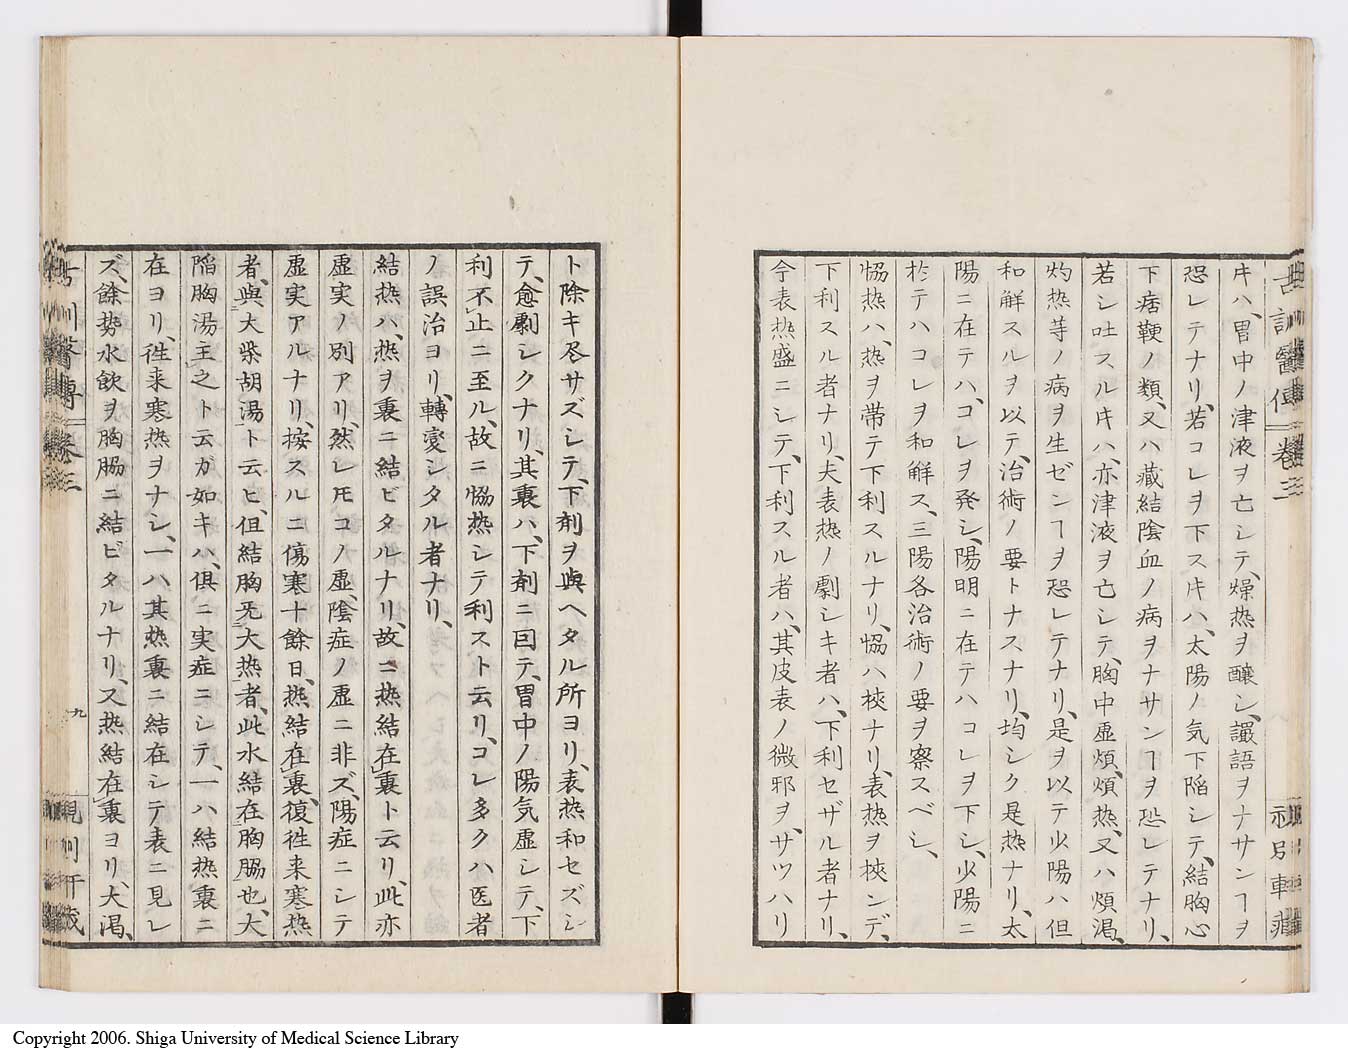 キハ、胃中ノ津液ヲ亡シテ、燥熱ヲ醸シ、讝語ヲナサンヿヲ
恐レテナリ、若コレヲ下スキハ、太陽ノ気下陥シテ、結胸心
下痞鞕ノ類、又ハ藏結陰血ノ病ヲナサンヿヲ恐レテナリ、
若シ吐スルキハ、亦津液ヲ亡シテ、胸中虚煩、煩熱、又ハ煩渇、
灼熱等ノ病ヲ生ゼンヿヲ恐レテナリ、是ヲ以テ少陽ハ但
和解スルヲ以テ、治術ノ要トナスナリ、均シク是熱ナリ、太
陽ニ在テハ、コレヲ発シ、陽明ニ在テハコレヲ下シ、少陽ニ
於テハコレヲ和解ス、三陽各治術ノ要ヲ察スベシ、
恊熱ハ、熱ヲ帯テ下利スルナリ、恊ハ挾ナリ、表熱ヲ挾ンデ、
下利スル者ナリ、夫表熱ノ劇シキ者ハ、下利セザル者ナリ、
今表熱盛ニシテ、下利スル者ハ、其皮表ノ微邪ヲ、サツハリ
ト除キ尽サズシテ、下剤ヲ與ヘタル所ヨリ、表熱和セズシ
テ、愈劇シクナリ、其裏ハ、下剤ニ因テ、胃中ノ陽気虚シテ、下
利不止ニ至ル、故ニ恊熱シテ利スト云リ、コレ多クハ医者
ノ誤治ヨリ、轉変シタル者ナリ、
結熱ハ、熱ヲ裏ニ結ビタルナリ、故ニ熱結在裏ト云リ、此亦
虚実ノ別アリ、然レ𪜈コノ虚、陰症ノ虚ニ非ズ、陽症ニシテ
虚実アルナリ、按スルニ傷寒十餘日、熱結在裏、復徃来寒熱
者、與大柴胡湯ト云ヒ、但結胸无大熱者、此水結在胸脇也、大
陥胸湯主之ト云ガ如キハ、倶ニ実症ニシテ、一ハ結熱裏ニ
在ヨリ、徃来寒熱ヲナシ、一ハ其熱裏ニ結在シテ表ニ見レ
ズ、餘勢水飲ヲ胸脇ニ結ビタルナリ、又熱結在裏ヨリ、大渇、
卷三
九
Copyright 2006. Shiga University of Medical Science Library